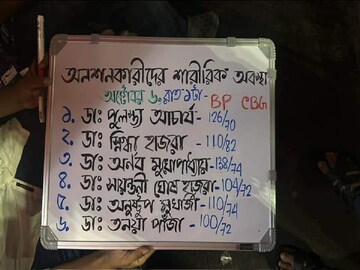 অনশনকারীদের শারীরিক অবস্থা
অক্টোবর ৬, রাত ৯টা - BP CBG
১. ডাঃ পুলস্ত্য আচার্য - 126/70
২. ডাঃ স্নিগ্ধা হাজরা - 110/82
৩. ডাঃ অর্ণব মুখোপাধ্যায় - 138/74
৪. ডাঃ সায়ন্তনী ঘোষ হাজরা - 104/72
৫. ডাঃ অনুষ্টুপ মুখার্জী - 110/74
৬. ডাঃ তনয়া পাঁজা - 100/72